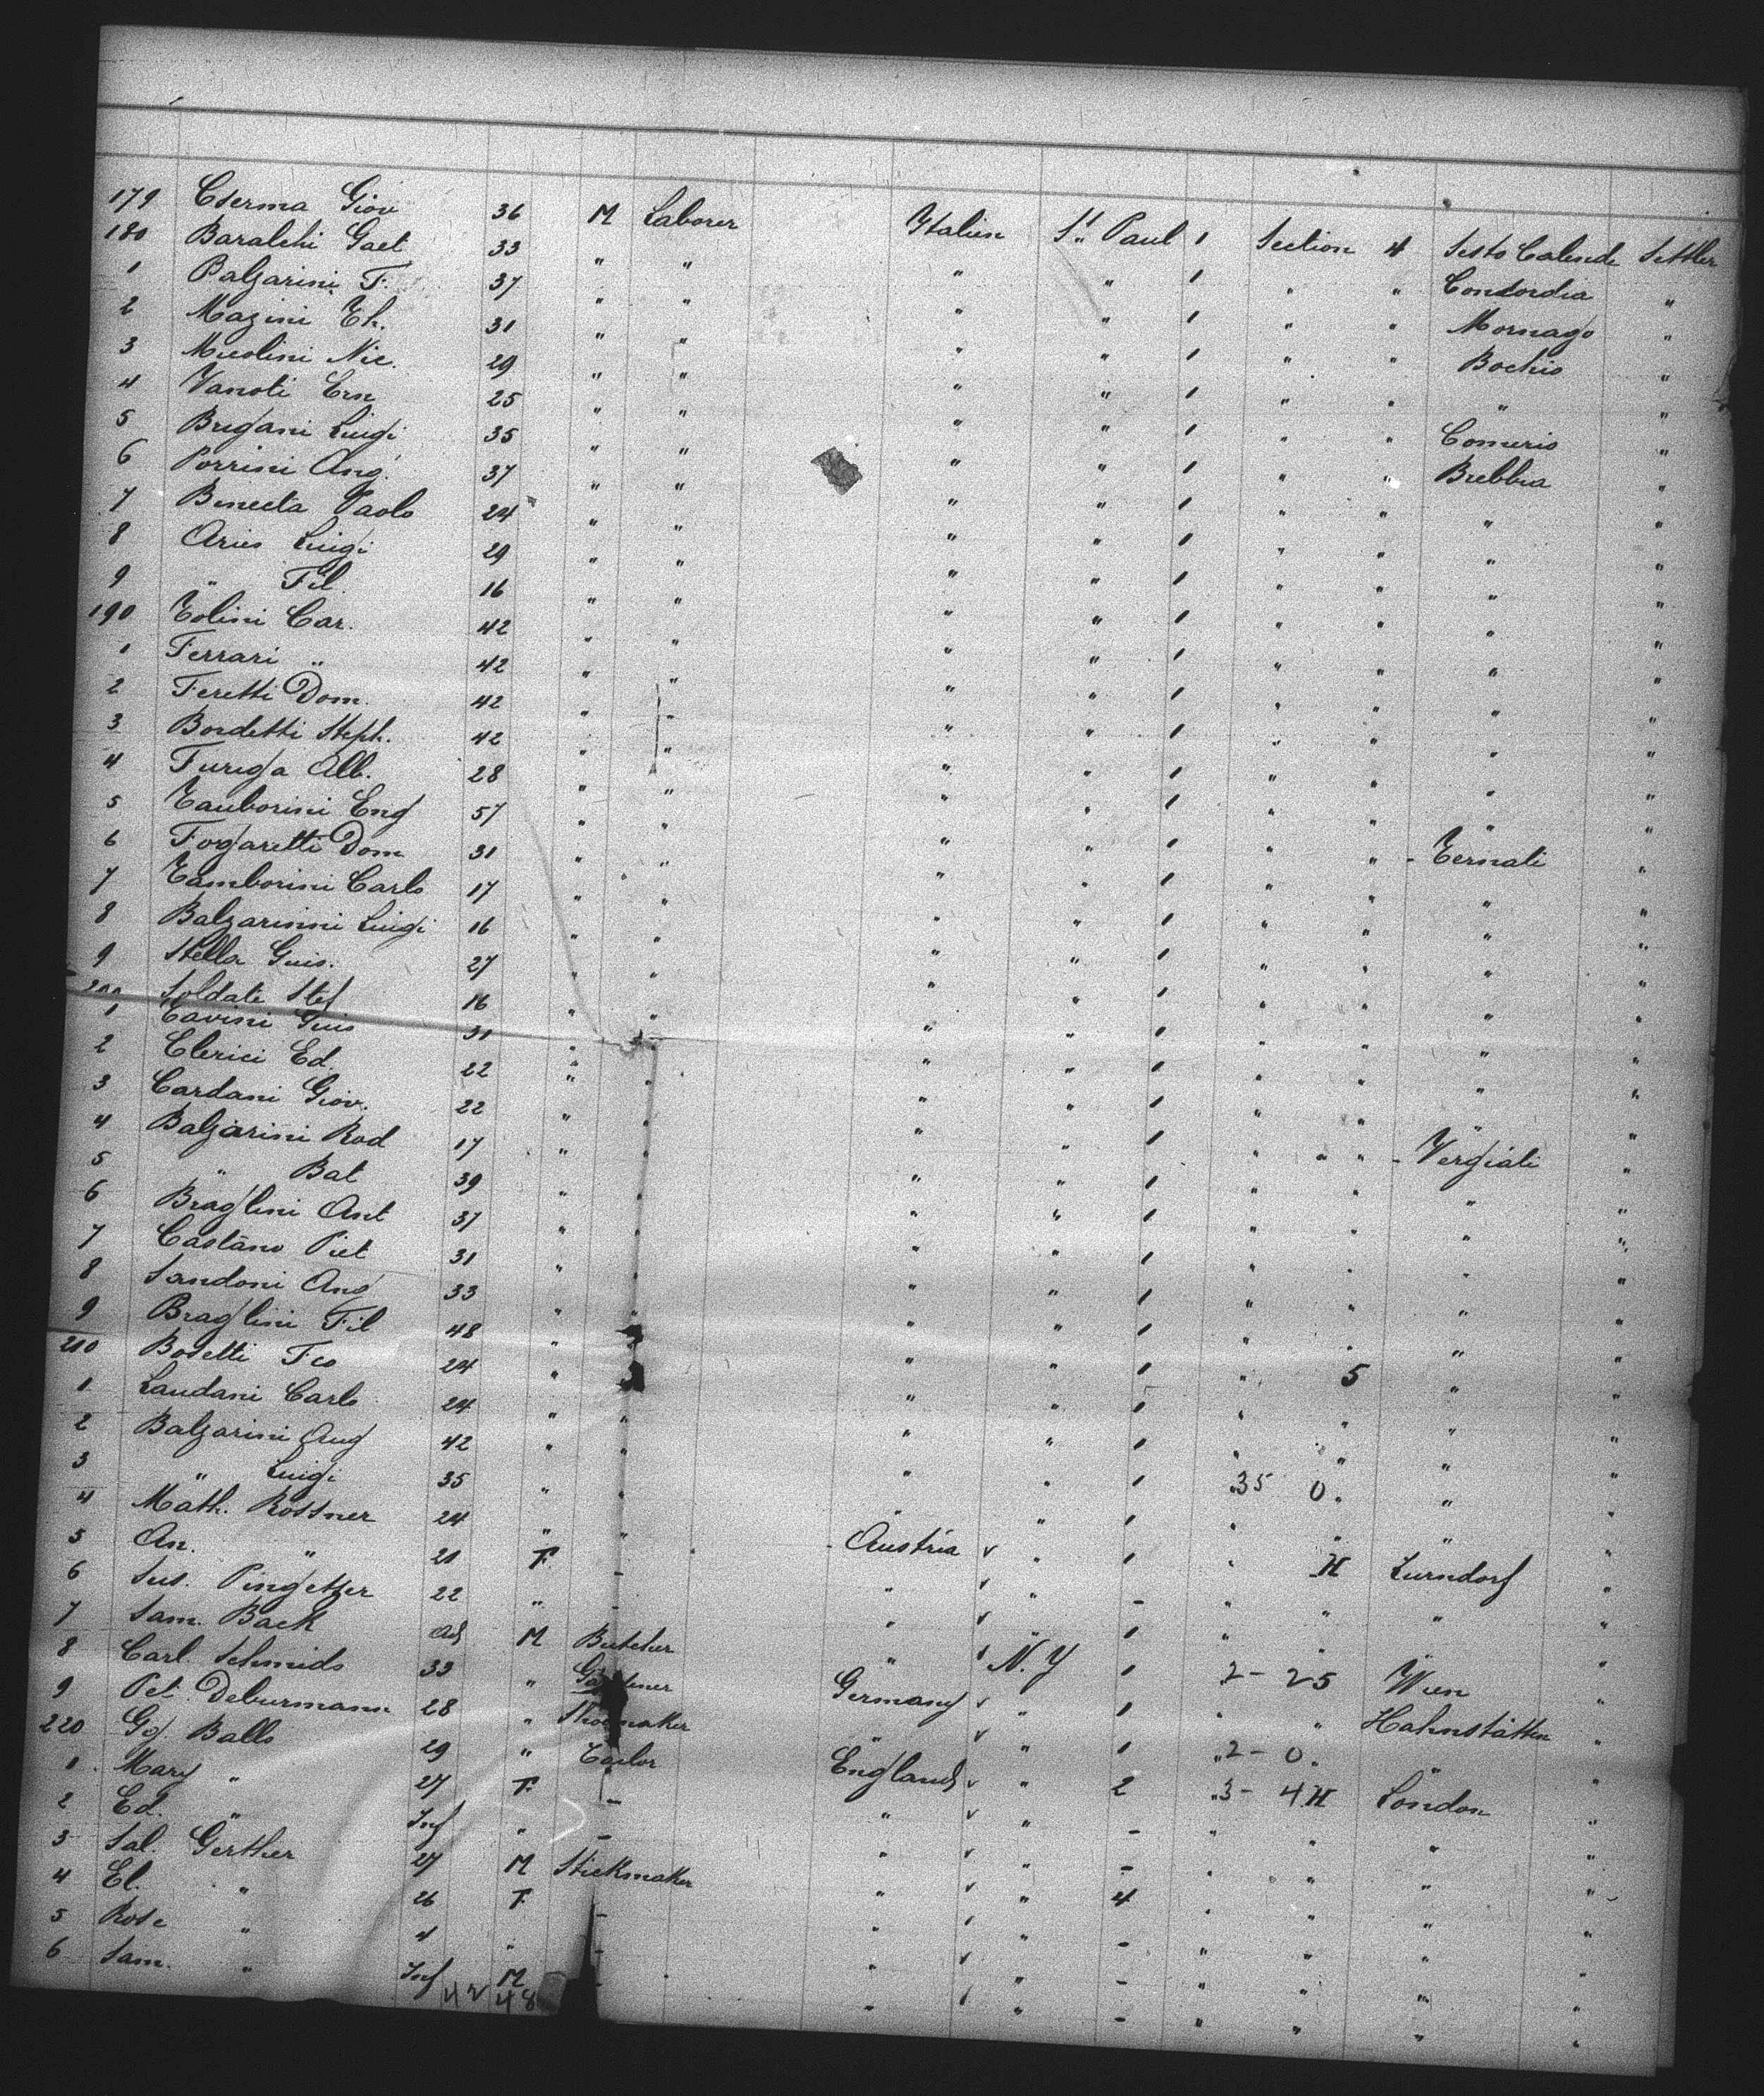 179 Cserma Giov 36 M Laborer Italien St. Paul 1 Section 4 Sesto Calende Settler
180 Baralchi Gaet 33 " " " " 1 " " Concordia "
1 Balzarini F. 37 " " " " 1 " " Mornago "
2 Mazini Eh. 31 " " " " 1 " " Bochio "
3 Micolini Nic. 29 " " " " 1 " " " "
4 Vanoti Ern 25 " " " " 1 " " Comerio "
5 Brigani Luigi 35 " " " " 1 " " Brebbia "
6 Porrini Ang. 37 " " " " 1 " " " "
7 Binecta Paolo 24 " " " " 1 " " " "
8 Arius Luigi 29 " " " " 1 " " " "
9 " Fil. 16 " " " " 1 " " " "
190 Tolini Car. 42 " " " " 1 " " " "
1 Ferrari " 42 " " " " 1 " " " "
2 Feretti Dom. 42 " " " " 1 " " " "
3 Bordetti Steph. 42 " " " " 1 " " " "
4 Furiga Alb. 28 " " " " 1 " " " "
5 Tauborini Eng 57 " " " " 1 " " " "
6 Fogaretti Dom 31 " " " " 1 " " - Ternati "
7 Tamborini Carlo 17 " " " " 1 " " " "
8 Balzarinni Luigi 16 " " " " 1 " " " "
9 Stella Guis. 27 " " " " 1 " " " "
200 Soldati Stef 16 " " " " 1 " " " "
1 Tavini Guis 31 " " " " 1 " " " "
2 Clerici Ed. 22 " " " " 1 " " " "
3 Cardani Giov. 22 " " " " 1 " " " "
4 Balzarini Rod 17 " " " " 1 " " - Vergiati "
5 " Bat 39 " " " " 1 " " " "
6 Braglini Ant 37 " " " " 1 " " " "
7 Castano Piet 31 " " " " 1 " " " "
8 Sandoni Ang 33 " " " " 1 " " " "
9 Braglini Fil 48 " " " " 1 " " " "
210 Bosetti Fco 24 " " " " 1 " 5 " "
1 Landani Carlo 24 " " " " 1 " " " "
2 Balzarini Aug 42 " " " " 1 " " " "
3 " Luigi 35 " " " " 1 35 0 " "
4 Math. Rossner 24 " " - Austria " 1 " H Lurndorf "
5 An. " 21 F - " " - " " " "
6 Sus. Pingetzer 22 " - " " 1 " " " "
7 Sam. Back Ad M Butcher " N.Y 1 2 - 25 Wien "
8 Carl Schmids 33 " Gardener Germany " 1 " " Hahnstätten "
9 Pet. Deburmann 28 " Shoemaker " " 1 2 - 0 " "
220 Gg. Balls 29 " Tailor England " 2 3 - 4 H London "
1 Mary " 27 F - " " - " " " "
2 Ed. " Inf " - " " - " " " "
3 Sal. Gerther 27 M Stickmaker " " 4 " " " "
4 El. " 26 F - " " - " " " "
5 Rose " 4 " - " " - " " " "
6 Sam. " Inf M - " " - " " " "
42 48